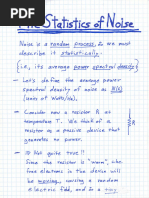 The Statistics of Noise
Noise is a random process, & we must
describe it statistically
(i.e., its average power spectral density)
- Let's define the average power
spectral density of noise as N(f)
(units of Watts/Hz).
- Consider now a resistor R at
temperature T. We think of a
resistor as a passive device that
generates no power.
Not quite true!!
Since the resistor is "warm",
free electrons in the device will
be moving, causing a
electric field, and in a tiny